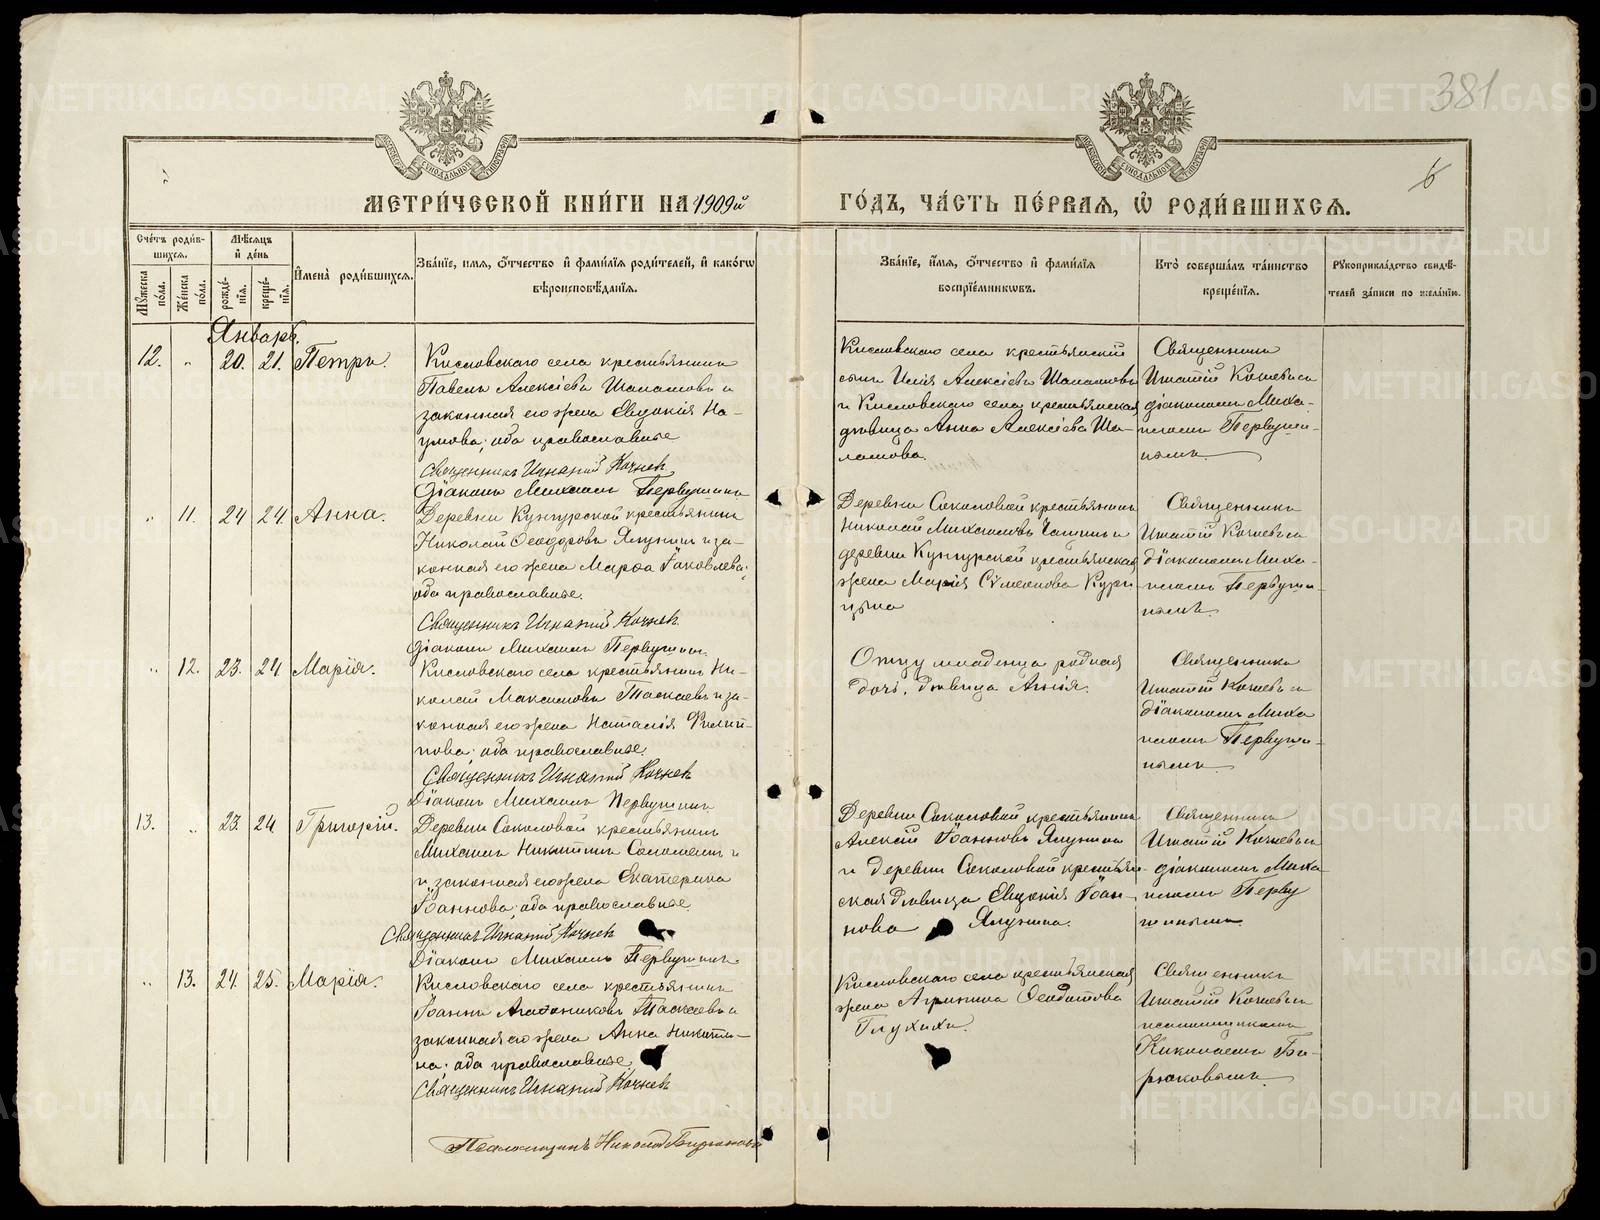 381
6
МЕТРИ́ЧЕСКОЙ КНИ́ГИ НА 1909й ГО́ДЪ, ЧА́СТЬ ПЕ́РВАЯ, Ѽ РОДИ́ВШИХСЯ.
Сче́тъ роди́в-
шихся.
Мѣ́сяцъ
и́ де́нь
Мꙋ́жеска по́ла.
Же́нска по́ла.
рожде́-
нїя.
креще́-
нїя.
И҆мена̀ роди́вшихся.
Зва́нїе, и́мя, ѻ҆́тчество и҆ фами́лїя роди́телей, и҆ како́гѡ
вѣроисповѣ́данїя.
Зва́нїе, и҆́мя, ѻ҆́тчество и҆ фами́лїя
воспрїе́мникѡвъ.
Кто̀ соверша́лъ та́инство
креще́нїя.
Рꙋкоприкла́дство свидѣ́-
телей за́писи по жела́нїю.
Январь.
12. „ 20. 21. Петръ.
Кисловскаго села крестьянинъ
Павелъ Алексѣевъ Шаламовъ и
законная его жена Евдокія На-
умова; оба православные
Священникъ Игнатій Кочневъ
Діаконъ Михаилъ Первушинъ
Кисловскаго села крестьянскій
сынъ Илія Алексѣевъ Шаламовъ
и Кисловскаго села крестьянская
дѣвица Анна Алексѣева Ша-
ламова.
Священникъ
Игнатій Кочневъ съ
діакономъ Миха-
иломъ Первуши-
нымъ
„ 11. 24 24. Анна.
Деревни Кунгурской крестьянинъ
Николай Ѳеодоровъ Ялунинъ и за-
конная его жена Марѳа Іаковлева;
оба православные.
Священникъ Игнатій Кочневъ
діаконъ Михаилъ Первушинъ.
Деревни Соколовой крестьянинъ
Николай Михаиловъ
деревни Кунгурской крестьянская
жена Марія Сѵмеонова
Священникъ
Игнатій Кочневъ съ
діакономъ Миха-
иломъ Первуши-
нымъ
„ 12. 23. 24 Марія.
Кисловскаго села крестьянинъ Ни-
колай Максимовъ Таскаевъ и за-
конная его жена Наталія Филип-
пова; оба православные.
Священникъ Игнатій Кочневъ
Діаконъ Михаилъ Первушинъ
Отцу младенца родная
дочь, дѣвица Агнія.
Священникъ
Игнатій Кочневъ съ
діакономъ Миха
иломъ Первуши-
нымъ
13. „ 23. 24 Григорій.
Деревни Соколовой крестьянинъ
Михаилъ Никитинъ и
и законная его жена Екатерина
Іоаннова; оба православные
Священникъ Игнатій Кочневъ
Діаконъ Михаилъ Первушинъ.
Деревни Соколовой крестьянинъ
Алексій Іоанновъ Ялунинъ
и деревни Соколовой крестьян-
ская дѣвица Евдокія Іоан-
нова Ялунина.
Священникъ
Игнатій Кочневъ съ
діакономъ Миха
иломъ Перву
шинымъ
„ 13. 24. 25. Марія.
Кисловскаго села крестьянинъ
Іоаннъ Агаѳониковъ Таскаевъ и
законная его жена Анна Никити-
на; оба православные
Священникъ Игнатій Кочневъ
Псаломщикъ Николай Бирюковъ
Кисловскаго села крестьянская
жена Агрипина Ѳеодотова
Глухихъ.
Священникъ
Игнатій Кочневъ съ
псаломщикомъ
Николаемъ Би-
рюковымъ.